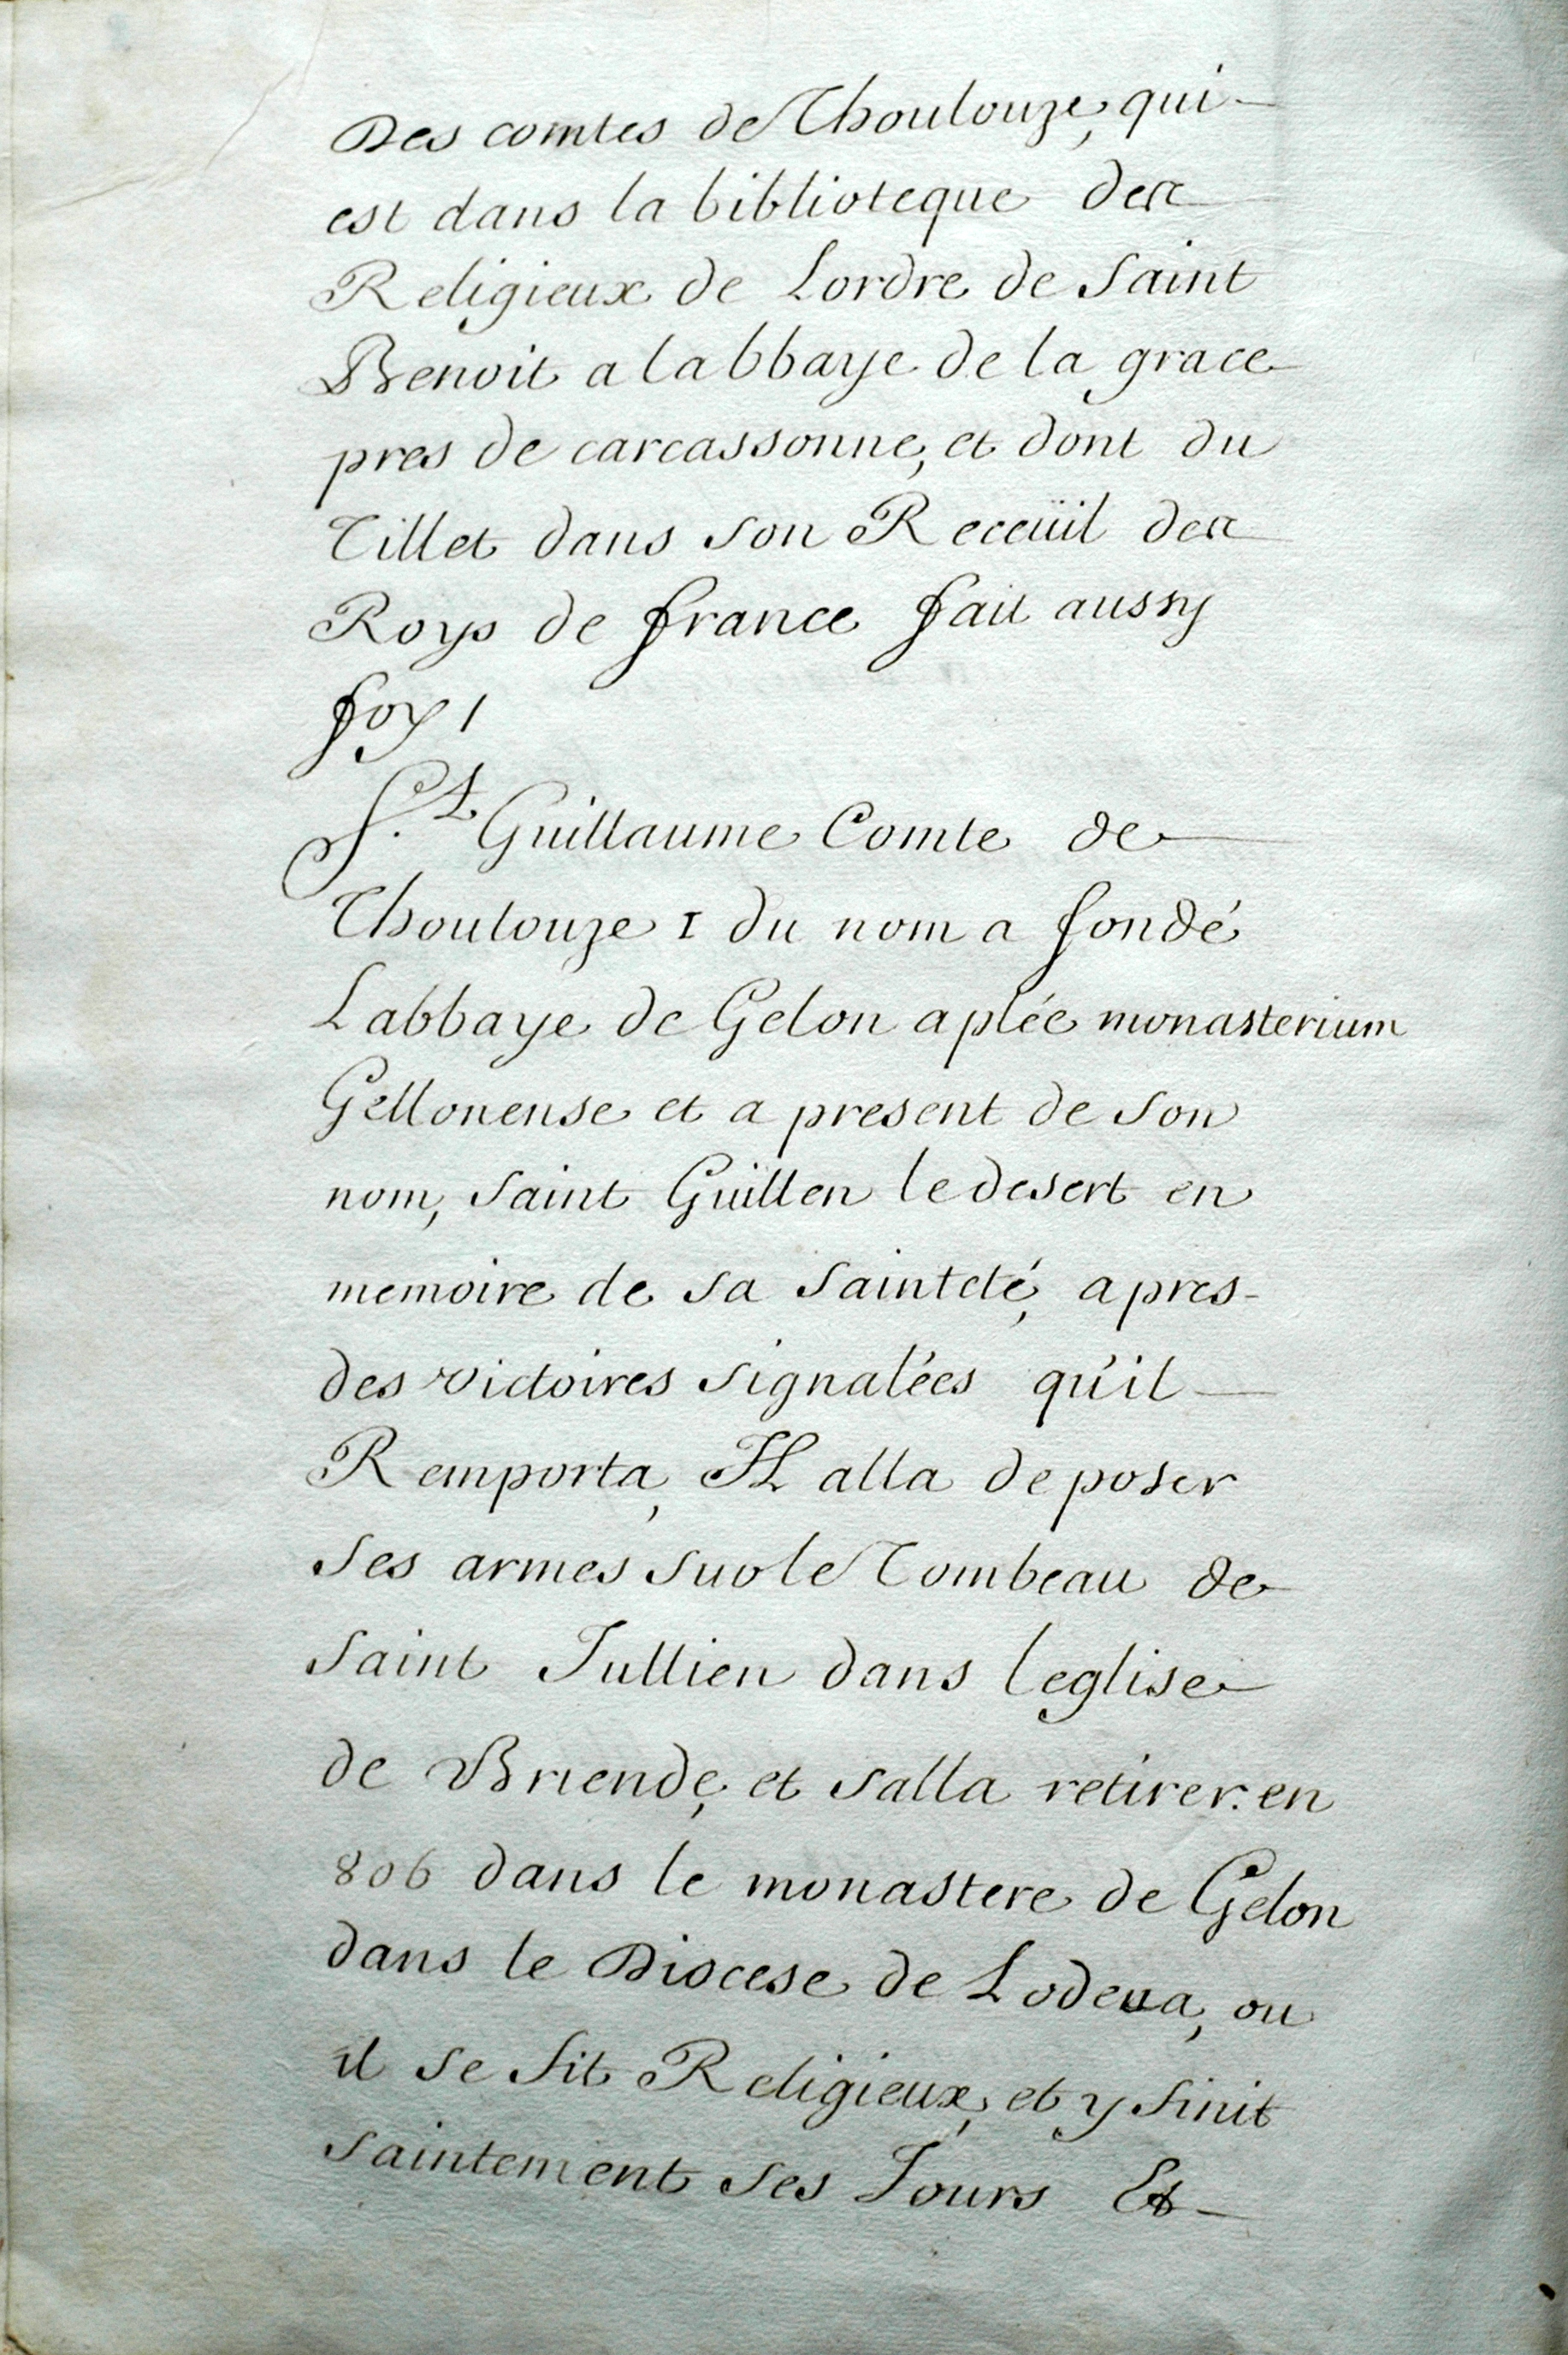 Des comtes de Thoulouze, qui
est dans la biblioteque des
Religieux de Lordre de Saint
Benoit a labbaye de la grace
pres de carcassonne, et dont du
Tillet dans son Receüil des
Roys de france fait aussy
foy /
S.t Guillaume Comte de
Thoulouze I du nom a fondé
Labbaye de Gelon aplée monasterium
Gellonense et a present de son
nom, Saint Guillen le desert en
memoire de sa Sainteté, apres
des victoires signalées qu'il
Remporta, Il alla deposer
ses armes sur le Tombeau de
Saint Jullien dans leglise
de Briende, et salla retirer en
806 dans le monastere de Gelon
dans le Diocese de Lodeva, ou
il se fit Religieux, et y finit
saintement ses Jours Et